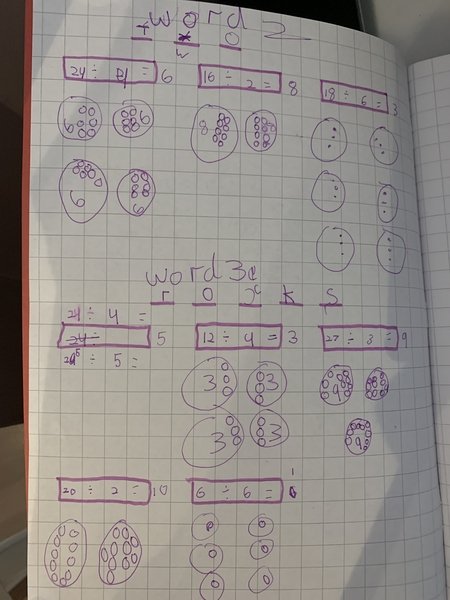 word 2
T w O
w
24 ÷ 4 = 6
16 ÷ 2 = 8
18 ÷ 6 = 3
6 6
8
6 6
word 3
r O c k s
24 ÷ 4 =
24 ÷ 5
25 ÷ 5 =
12 ÷ 4 = 3
27 ÷ 3 = 9
3 3
9
3 3
9
20 ÷ 2 = 10
6 ÷ 6 = 1